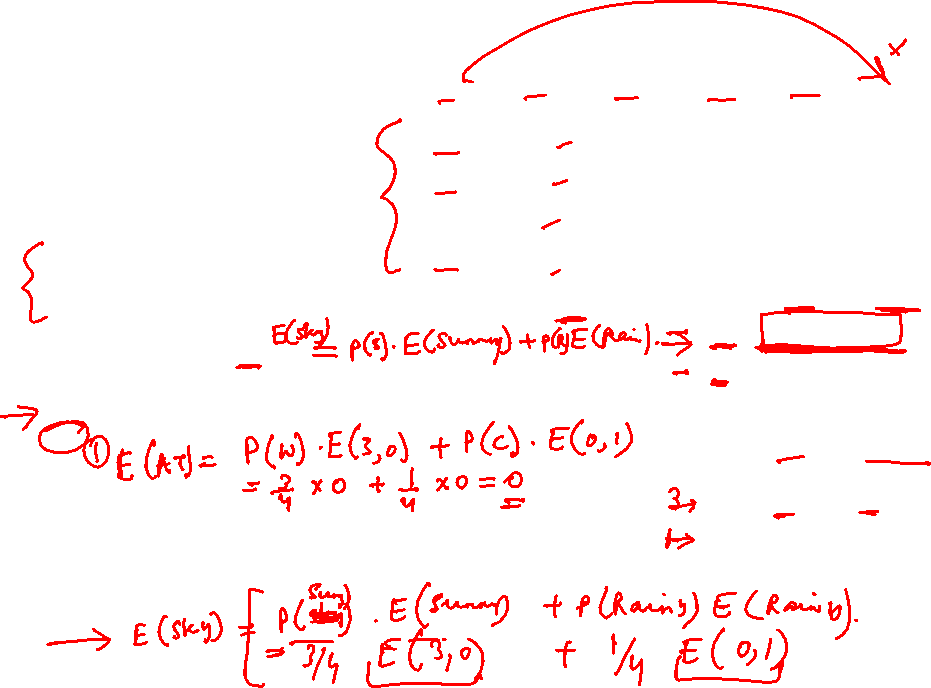 x
E(sky) = P(S). E(Sunny) + P(R) E(Rain). →
① E(AT) = P(W) · E(3,0) + P(C) · E(0,1)
= 3/4 × 0 + 1/4 × 0 = 0
3 →
1 →
Sunny
→ E(sky) = P( ) . E(Sunny) + P(Rainy) E(Rainy).
= 3/4 E(3,0) + 1/4 E(0,1)